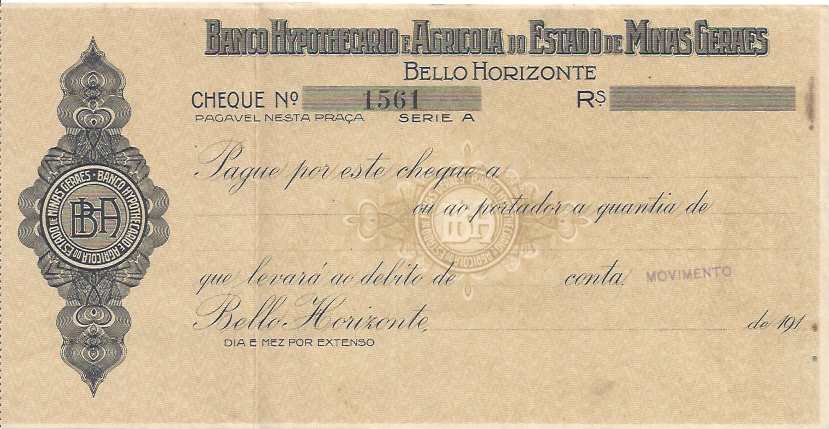 BANCO HYPOTHECARIO E AGRICOLA DO ESTADO DE MINAS GERAES
BELLO HORIZONTE
CHEQUE Nº 1561 RS
PAGAVEL NESTA PRAÇA SERIE A
Pague por este cheque a
ou ao portador a quantia de
que levará ao debito de conta MOVIMENTO
Bello Horizonte, de 191
DIA E MEZ POR EXTENSO
BANCO HYPOTHECARIO E AGRICOLA DO ESTADO DE MINAS GERAES
BHA